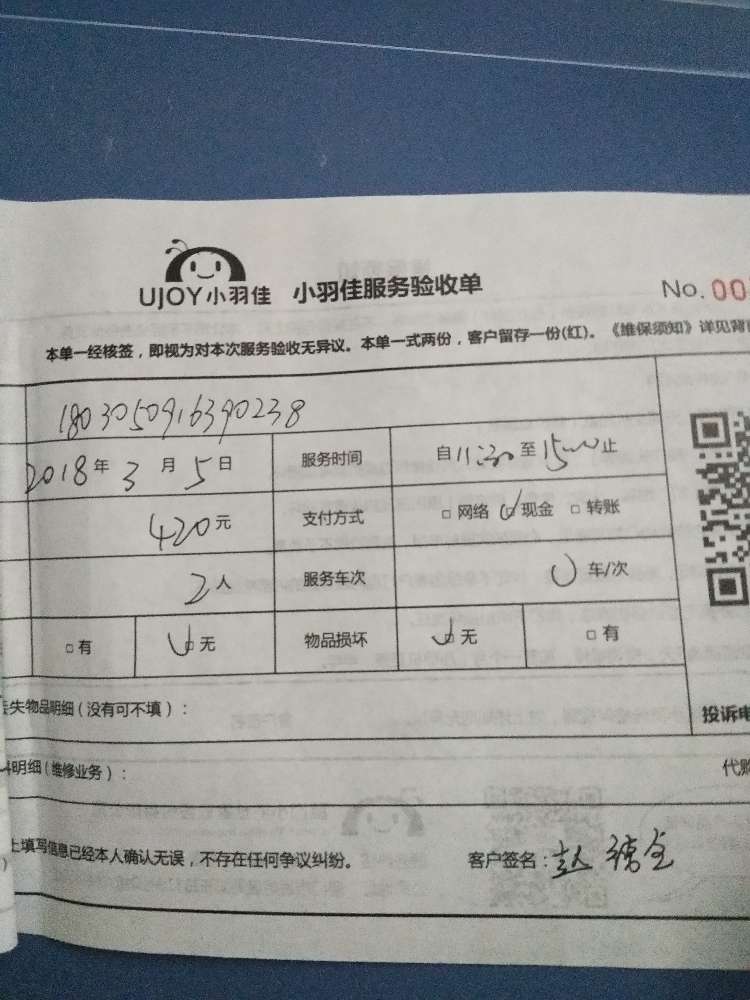 UJOY小羽佳 小羽佳服务验收单 No. 00
本单一经核签，即视为对本次服务验收无异议。本单一式两份，客户留存一份(红)。《维保须知》详见背
1803050916390238
2018年3月5日 服务时间 自11:30至15:00止
420元 支付方式 □网络 ☑现金 □转账
2人 服务车次 0车/次
□有 ☑无 物品损坏 ☑无 □有
失物品明细(没有可不填)：
投诉电
明细(维修业务)：
代购
上填写信息已经本人确认无误，不存在任何争议纠纷。 客户签名：赵德全